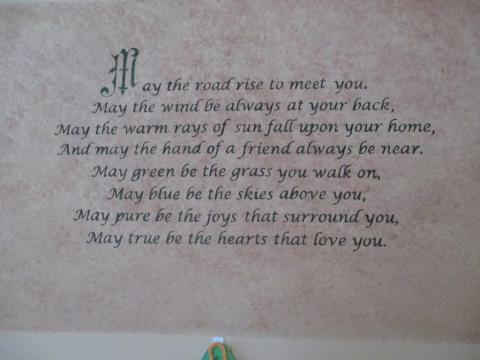 May the road rise to meet you,
May the wind be always at your back,
May the warm rays of sun fall upon your home,
And may the hand of a friend always be near.
May green be the grass you walk on,
May blue be the skies above you,
May pure be the joys that surround you,
May true be the hearts that love you.